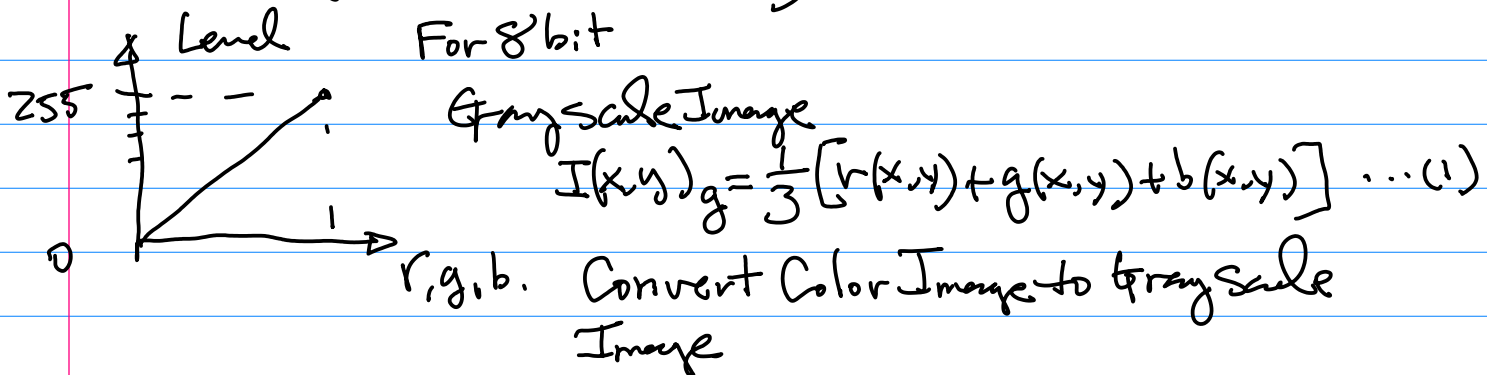 Level For 8 bit
255
Grayscale Image
I(x,y)g = 1/3 [r(x,y)+g(x,y)+b(x,y)] ...(1)
0
r,g,b. Convert Color Image to Grayscale
Image